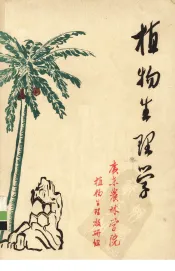 植物生理学
广东农林学院
植物生理教研组